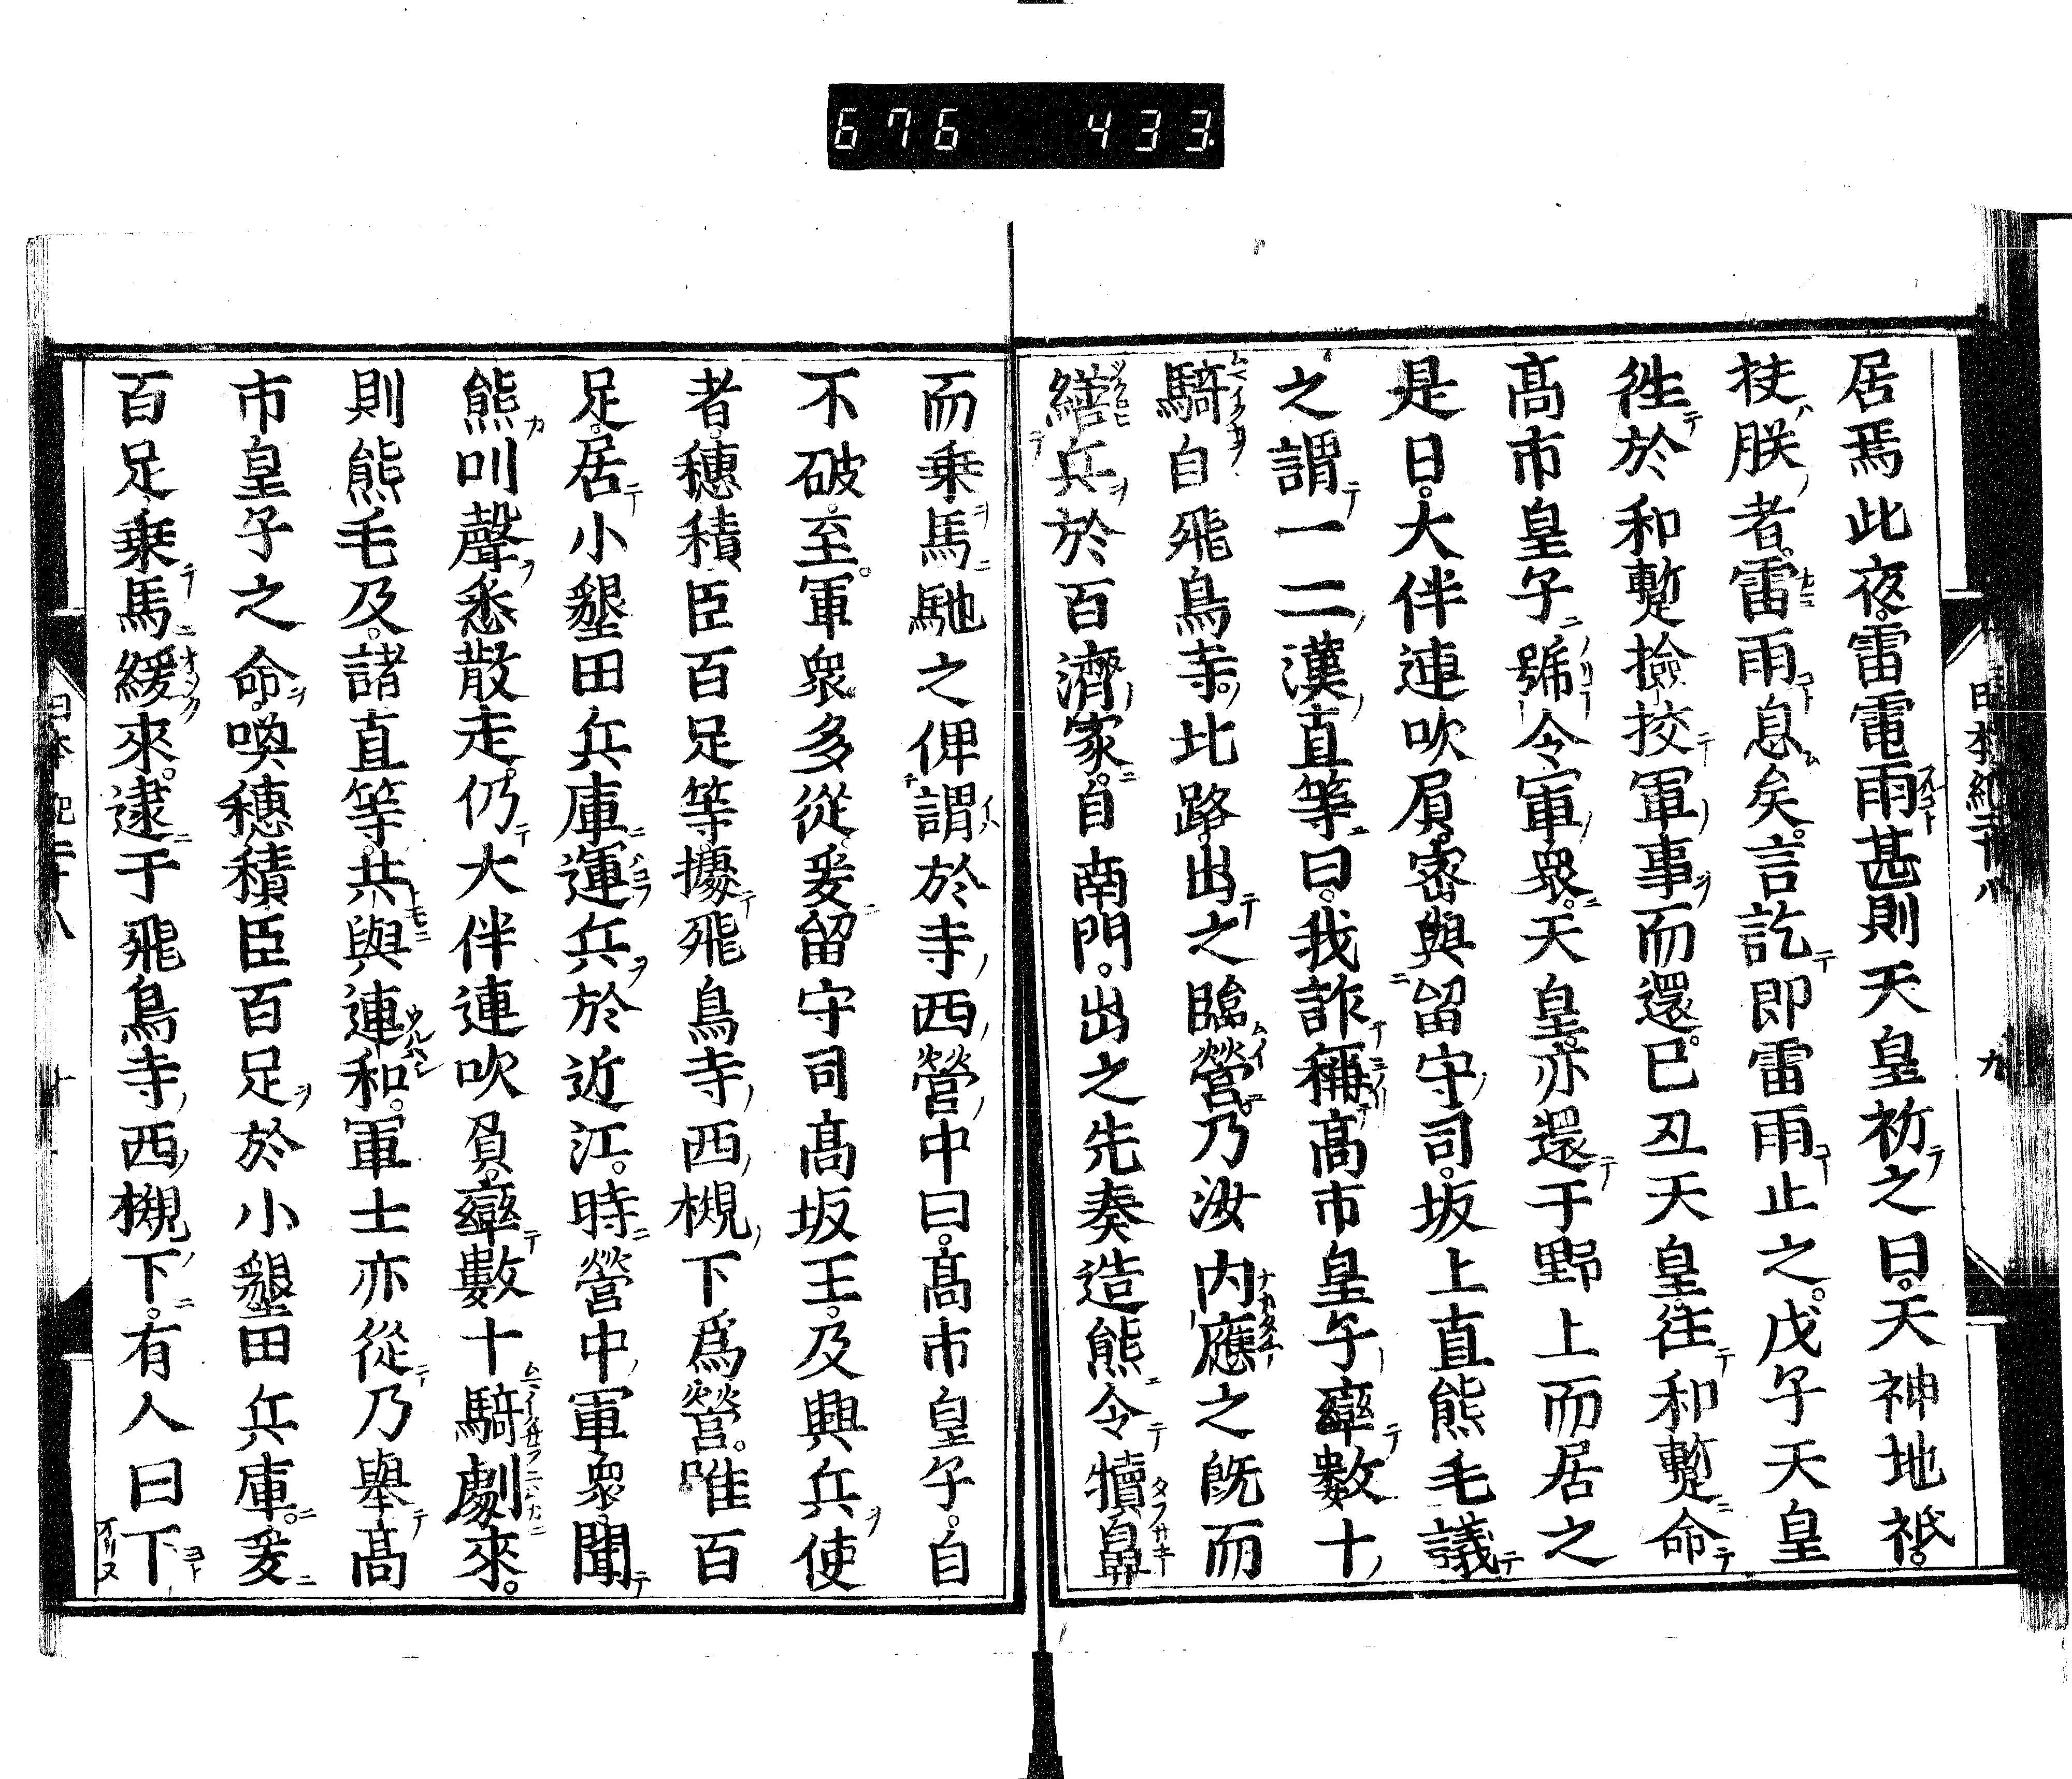 676 433
日本紀二十八 九
居焉此夜雷電雨甚則天皇祈之曰天神地祇
扶朕者雷雨息矣言訖即雷雨止之戊子天皇
徃於和蹔撿挍軍事而還已丑天皇往和蹔命
髙市皇子號令軍衆天皇亦還于野上而居之
是日大伴連吹屓宻與留守司坂上直熊毛議
之謂一二漢直等曰我詐稱髙市皇子率數十
騎自飛鳥寺北路出之臨營乃汝内應之既而
繕兵於百濟家自南門出之先秦造熊令犢鼻
而乗馬馳之俾謂於寺西營中曰髙市皇子自
不破至軍衆多從爰留守司髙坂王及興兵使
者穗積臣百足等據飛鳥寺西槻下爲營唯百
足居小墾田兵庫運兵於近江時營中軍衆聞
熊叫聲悉散走仍大伴連吹負率數十騎劇來
則熊毛及諸直等共與連和軍士亦從乃舉髙
市皇子之命喚穗積臣百足於小墾田兵庫爰
百足乗馬緩來逮于飛鳥寺西槻下有人曰下
日本紀二十八 十